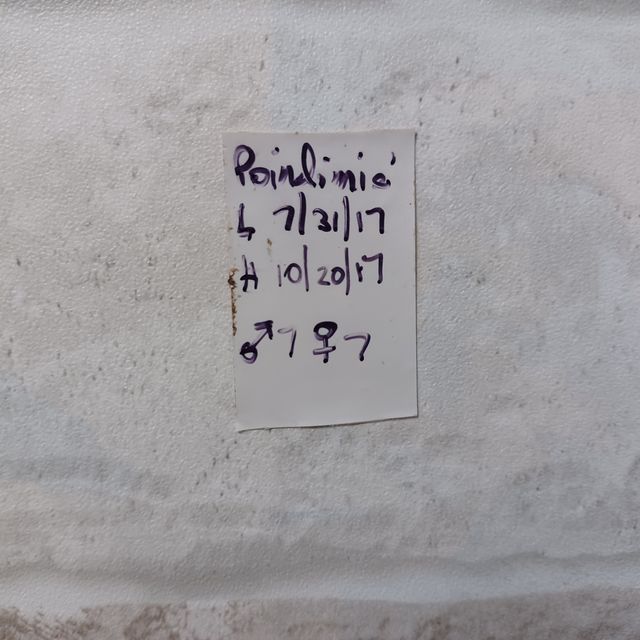 Poindimié
L 7/31/17
H 10/20/17
♂7 ♀7